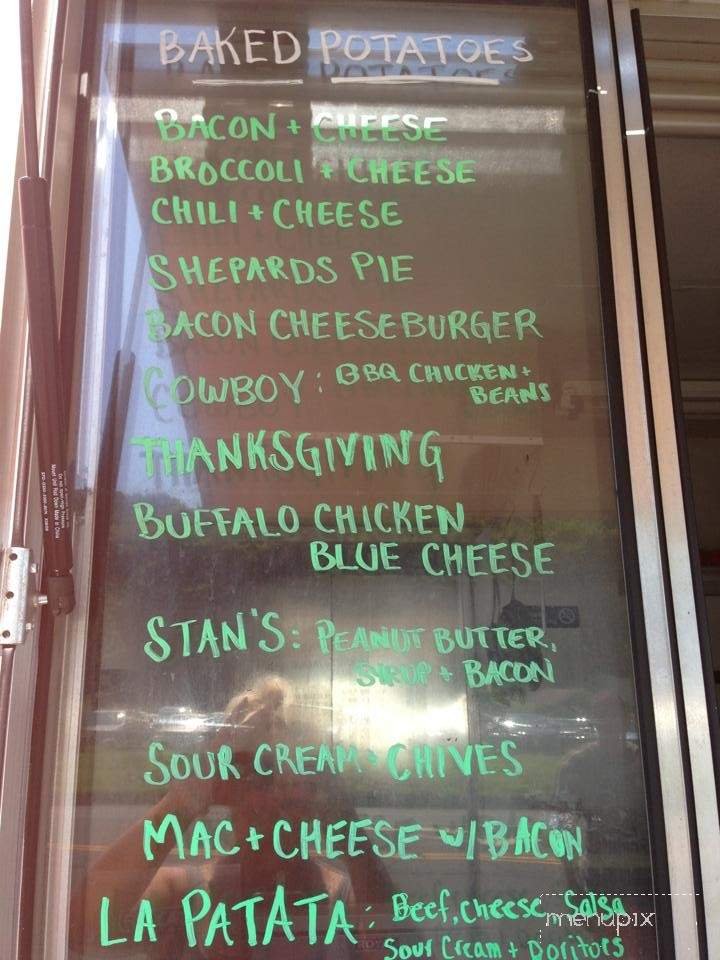 BAKED POTATOES
BACON + CHEESE
BROCCOLI + CHEESE
CHILI + CHEESE
SHEPARDS PIE
BACON CHEESEBURGER
COWBOY: BBQ CHICKEN +
BEANS
THANKSGIVING
BUFFALO CHICKEN
BLUE CHEESE
STAN'S: PEANUT BUTTER,
SYRUP + BACON
SOUR CREAM + CHIVES
MAC + CHEESE w/ BACON
LA PATATA: Beef, Cheese, Salsa
Sour Cream + Doritoes
menupix